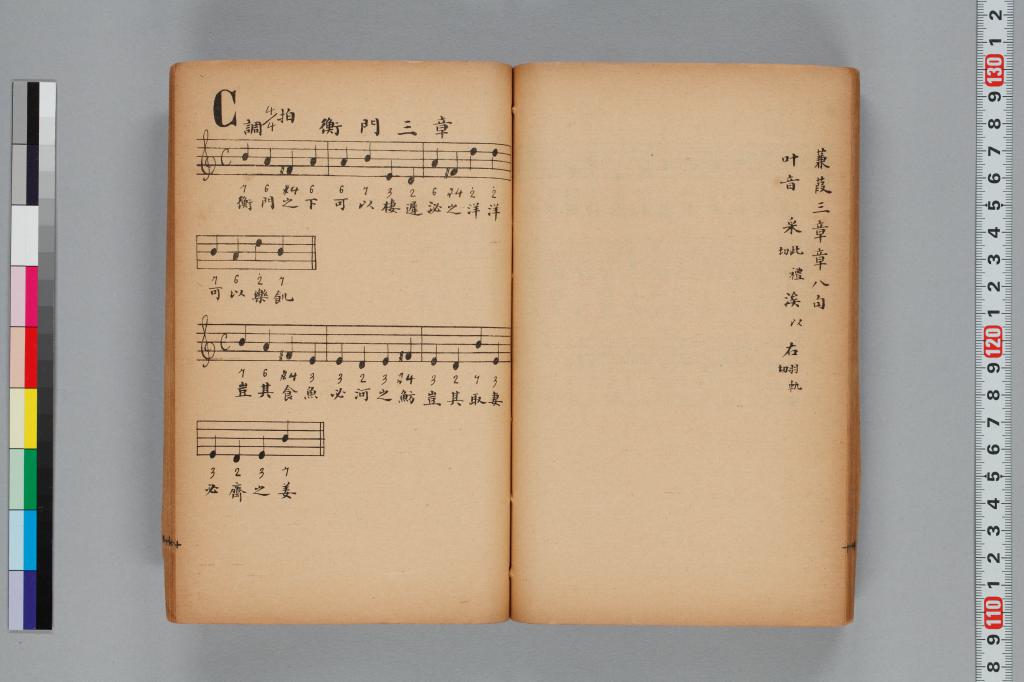 蒹葭三章章八句
叶音 采 此禮切 涘 以 右 羽軌切
C調 4/4拍 衡門三章
7 6 #4 6 6 7 3 2 6 #4 2̇ 2̇
衡門之下可以棲遲泌之洋洋
7 6 2̇ 7
可以樂飢
7 6 #4 3 3 2 3 #4 3 2 7 3
豈其食魚必河之魴豈其取妻
3 2 3 7
必齊之姜
8 9 110 1 2 3 4 5 6 7 8 9 120 1 2 3 4 5 6 7 8 9 130 1 2